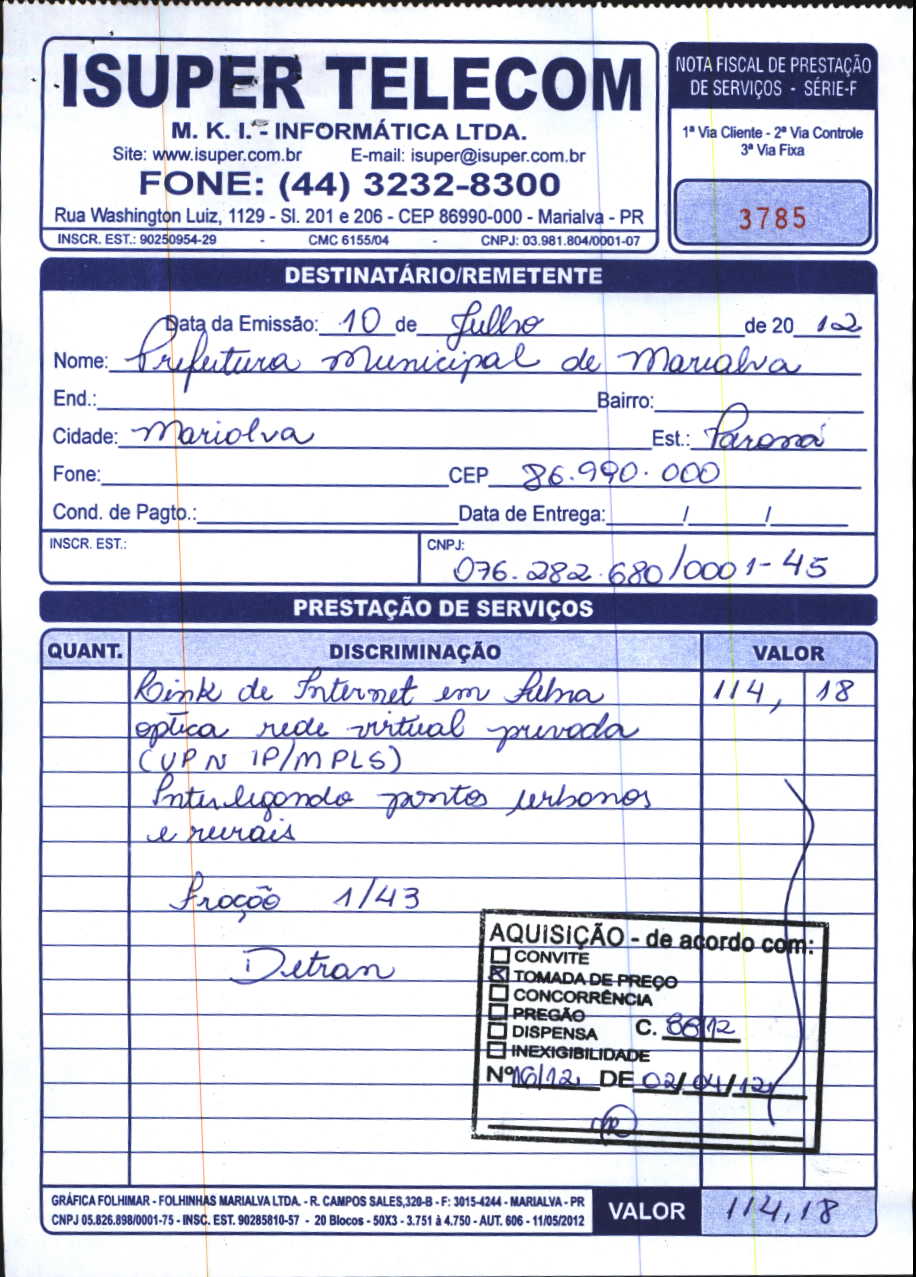 ISUPER TELECOM
M. K. I. - INFORMÁTICA LTDA.
Site: www.isuper.com.br E-mail: isuper@isuper.com.br
FONE: (44) 3232-8300
Rua Washington Luiz, 1129 - Sl. 201 e 206 - CEP 86990-000 - Marialva - PR
INSCR. EST.: 90250954-29 - CMC 6155/04 - CNPJ: 03.981.804/0001-07
NOTA FISCAL DE PRESTAÇÃO
DE SERVIÇOS - SÉRIE-F
1ª Via Cliente - 2ª Via Controle
3ª Via Fixa
3785
DESTINATÁRIO/REMETENTE
Data da Emissão: 10 de Julho de 20 12
Nome: Prefeitura Municipal de Marialva
End.: Bairro:
Cidade: Marialva Est.: Paraná
Fone: CEP 86.990.000
Cond. de Pagto.: Data de Entrega: / /
INSCR. EST.: CNPJ: 076.282.680/0001-45
PRESTAÇÃO DE SERVIÇOS
QUANT. DISCRIMINAÇÃO VALOR
Link de Internet em fibra 114, 18
optica rede virtual privada
(VPN IP/MPLS)
Interligando pontos urbanos
e rurais
Fração 1/43
Detran
AQUISIÇÃO - de acordo com:
CONVITE
TOMADA DE PREÇO
CONCORRÊNCIA
PREGÃO
DISPENSA C. 88/12
INEXIGIBILIDADE
Nº 16/12 DE 02/04/12
GRÁFICA FOLHIMAR - FOLHINHAS MARIALVA LTDA. - R. CAMPOS SALES,320-B - F: 3015-4244 - MARIALVA - PR
CNPJ 05.826.898/0001-75 - INSC. EST. 90285810-57 - 20 Blocos - 50X3 - 3.751 à 4.750 - AUT. 606 - 11/05/2012
VALOR 114,18